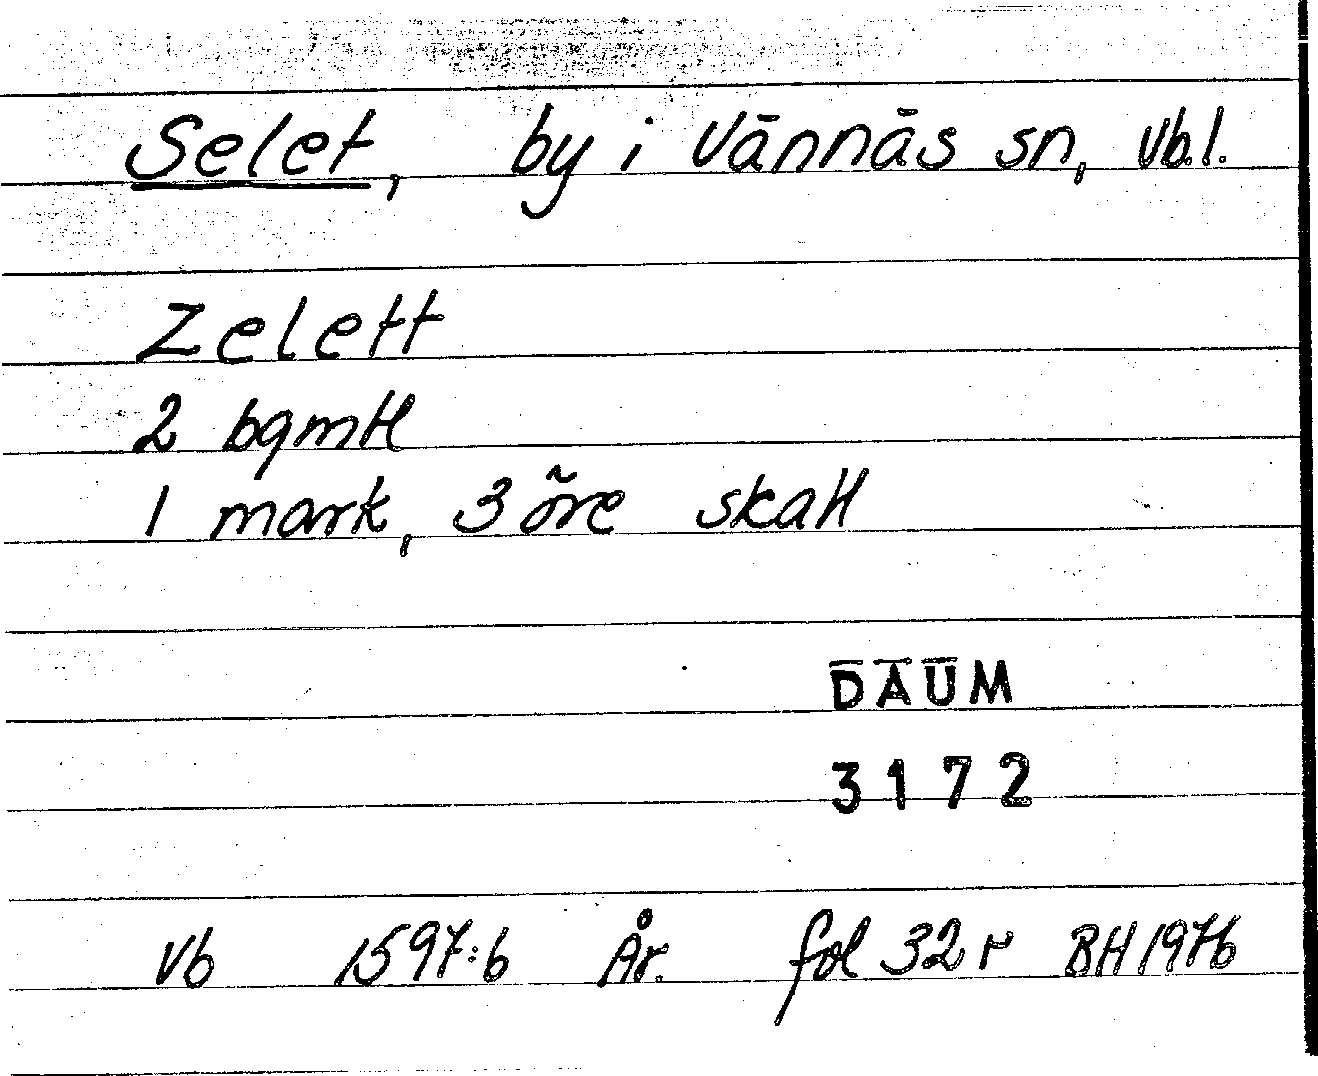 Selet, by i Vännäs sn, Vb.l.
Zelett
2 bgmtl
1 mark, 3 öre skatt
DAUM
3172
Vb 1597:6 År. fol 32 r BH 1976